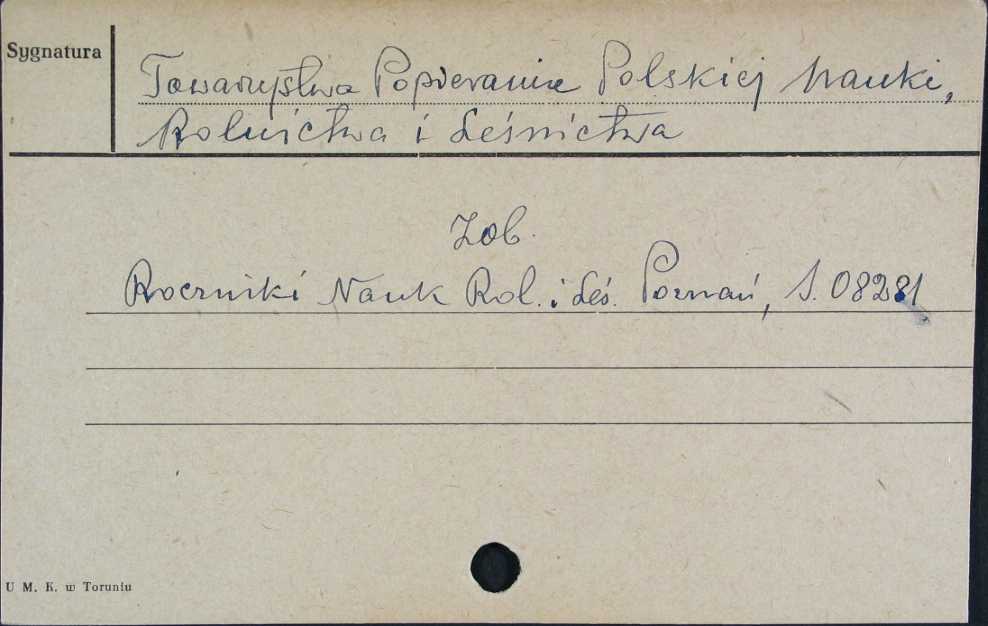 Sygnatura
Towarzystwa Popierania Polskiej Nauki,
Rolnictwa i Leśnictwa
Zob.
Roczniki Nauk Rol. i Leś. Poznań, S. 08281
U M. K. w Toruniu